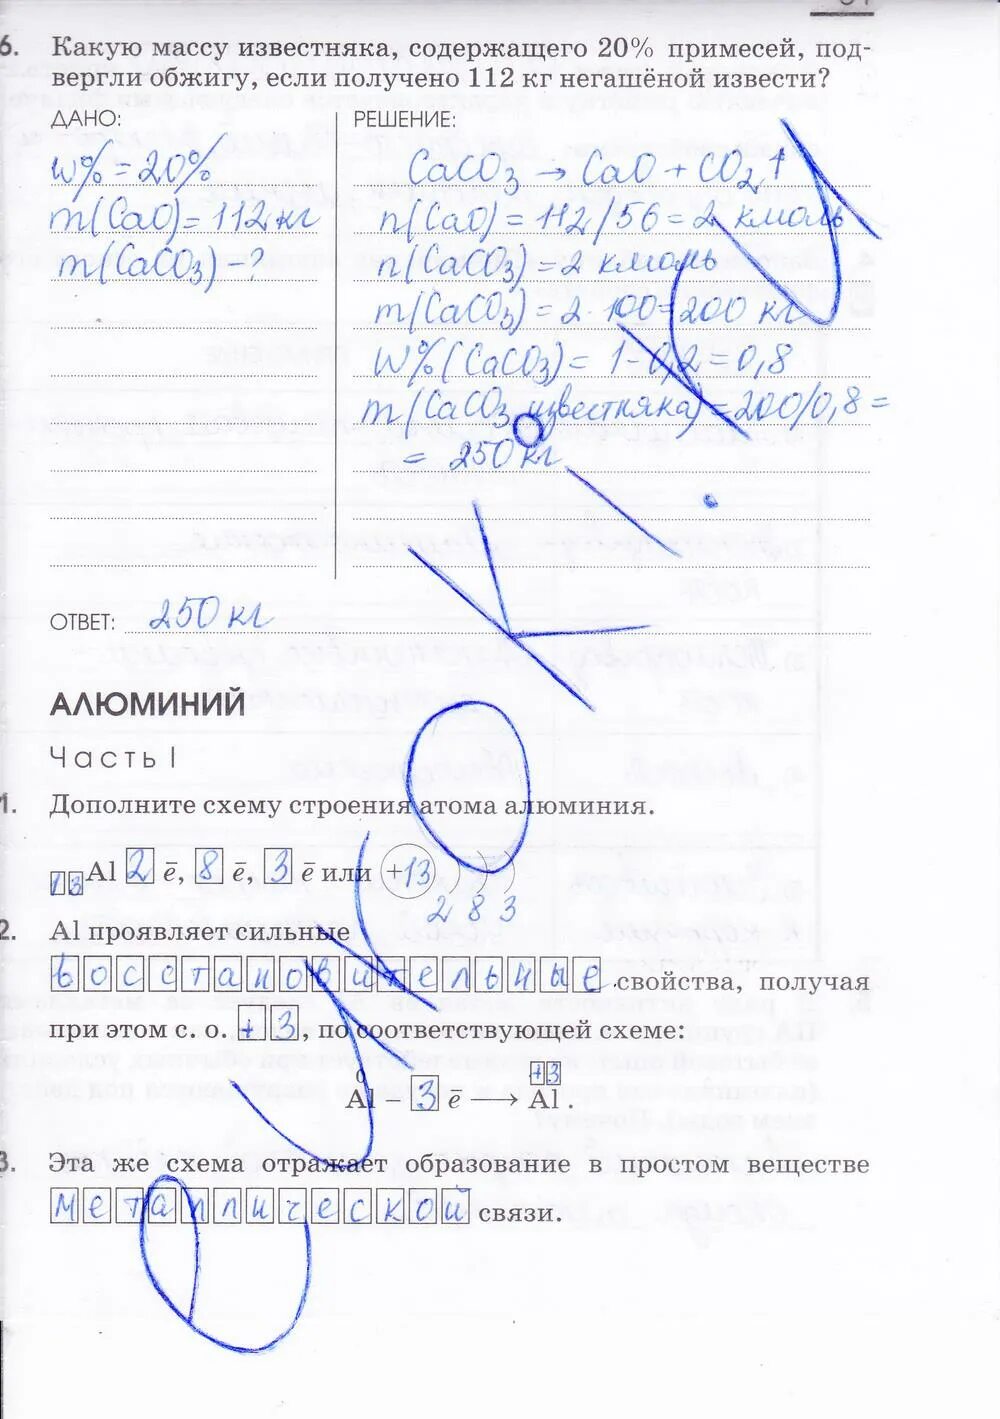 6. Какую массу известняка, содержащего 20% примесей, под-
вергли обжигу, если получено 112 кг негашёной извести?
ДАНО:
РЕШЕНИЕ:
w% = 20%
m(CaO) = 112 кг
m(CaCO₃) - ?
CaCO₃ → CaO + CO₂↑
n(CaO) = 112/56 = 2 кмоль
n(CaCO₃) = 2 кмоль
m(CaCO₃) = 2 · 100 = 200 кг
W%(CaCO₃) = 1 - 0,2 = 0,8
m(CaCO₃ известняка) = 200/0,8 =
= 250 кг
ОТВЕТ: 250 кг
АЛЮМИНИЙ
Часть I
1. Дополните схему строения атома алюминия.
₁₃Al 2 ē, 8 ē, 3 ē или +13 ) ) )
2 8 3
2. Al проявляет сильные
восстановительные свойства, получая
при этом с. о. +3, по соответствующей схеме:
0 +3
Al – 3 ē ⟶ Al .
3. Эта же схема отражает образование в простом веществе
металлической связи.